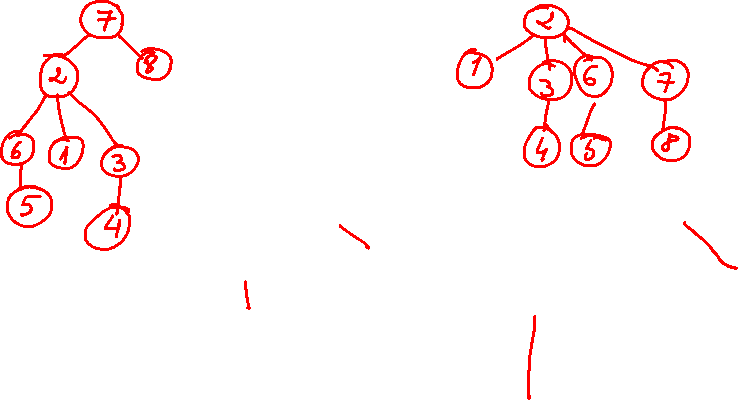 7
2 8
6 1 3
5 4
2
1 3 6 7
4 5 8